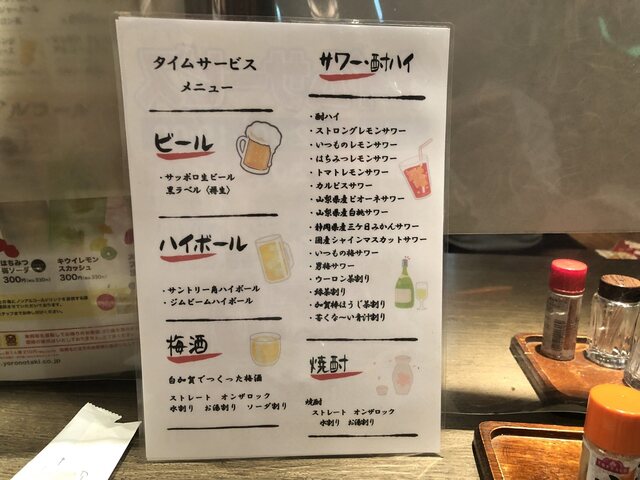 タイムサービス
メニュー
ビール
・サッポロ生ビール
黒ラベル〈樽生〉
ハイボール
・サントリー角ハイボール
・ジムビームハイボール
梅酒
白加賀でつくった梅酒
ストレート オンザロック
水割り お湯割り ソーダ割り
サワー・酎ハイ
・酎ハイ
・ストロングレモンサワー
・いつものレモンサワー
・はちみつレモンサワー
・トマトレモンサワー
・カルピスサワー
・山梨県産ピオーネサワー
・山梨県産白桃サワー
・静岡県産三ケ日みかんサワー
・国産シャインマスカットサワー
・いつもの梅サワー
・男梅サワー
・ウーロン茶割り
・緑茶割り
・加賀棒ほうじ茶割り
・苦くな~い青汁割り
焼酎
焼酎
ストレート オンザロック
水割り お湯割り
はちみつ
ソーダ
300円
キウイレモン
スカッシュ
300円
.yoronotaki.co.jp